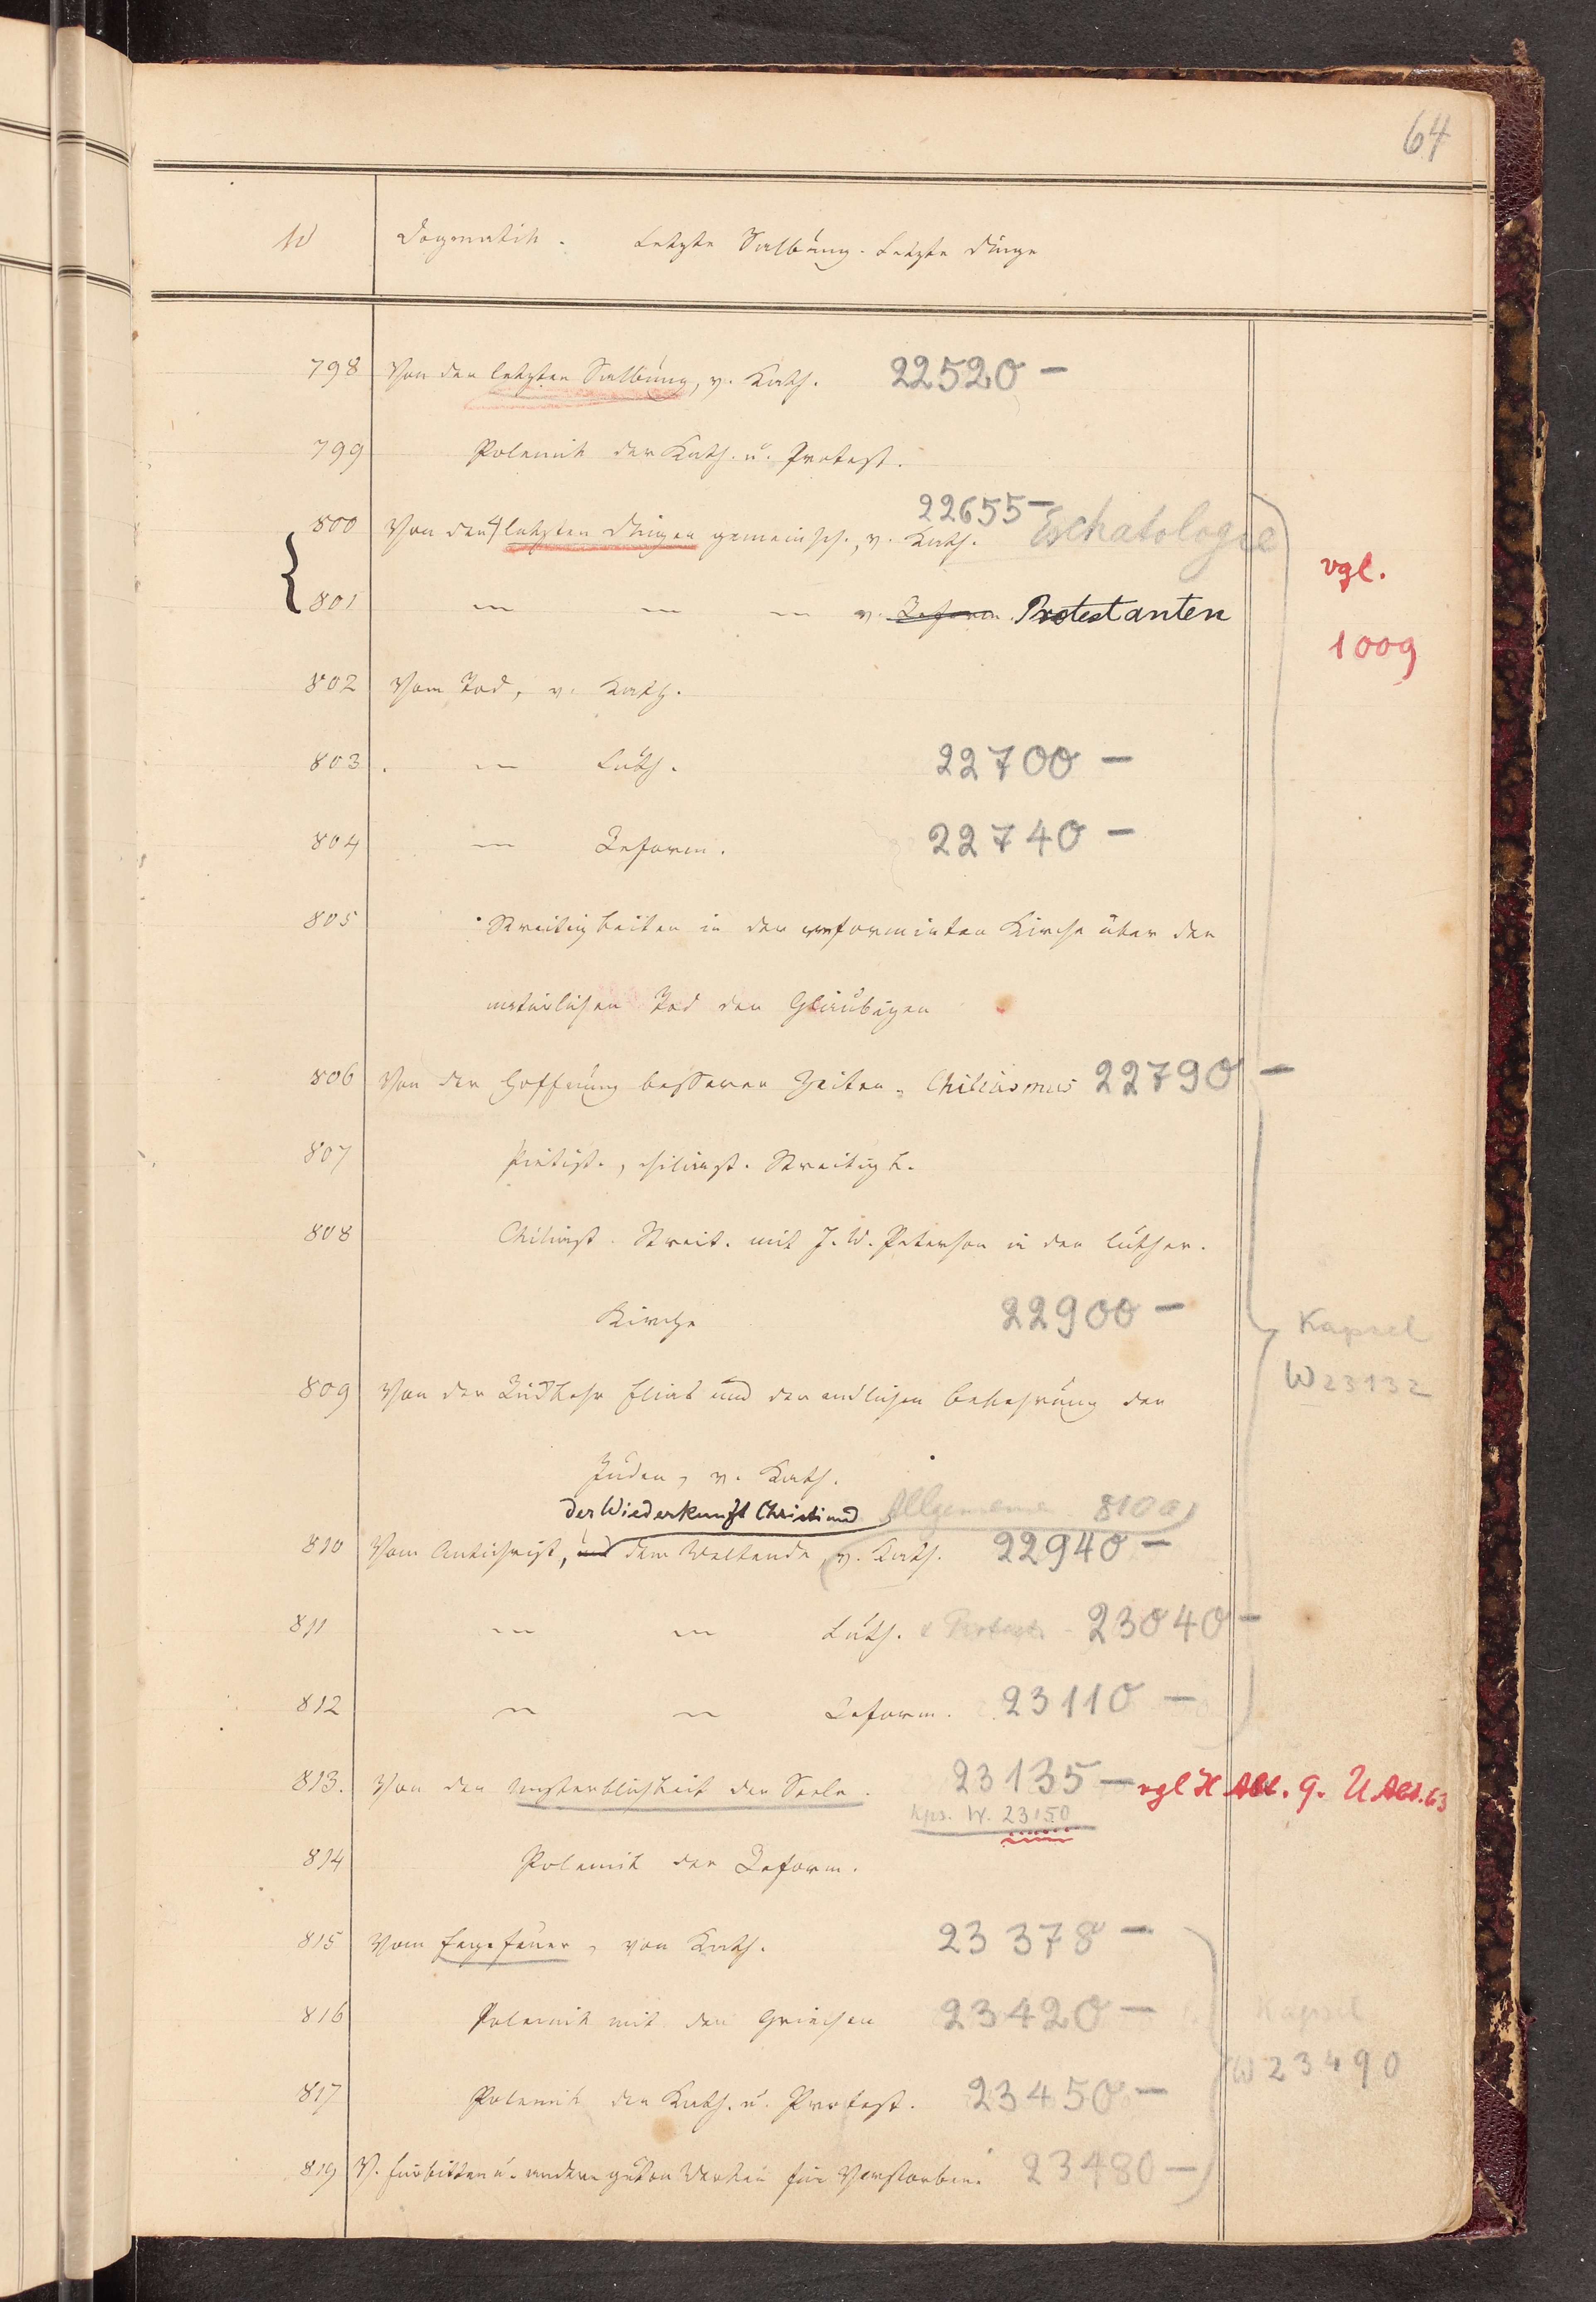 64
W Dogmatik. Letzte Salbung. Letzte Dinge
798 Von der letzten Salbung, v. Kath. 22520 —
799 Polemik der Kath. u. Protest.
22655 — Eschatologie
800 Von den 4 letzten Dingen gemeinsch., v. Kath.
vgl.
801 — — — v. Reform. Protestanten
1009
802 Vom Tod, v. Kath.
803 — Luth. 22700 —
804 — Reform. 22740 —
805 Streitigkeiten in der reformirten Kirche über den
natürlichen Tod der Gläubigen
806 Von der Hoffnung besserer Zeiten, Chiliasmus 22790 —
807 Pietist., chiliast. Streitigk.
808 Chiliast. Streit. mit J. W. Petersen in der luther.
Kirche 22900 —
Kapsel
W 23132
809 Von der Rückkehr Eliä und der endlichen Bekehrung der
Juden, v. Kath.
der Wiederkunft Christi und Allgemeine 810a
810 Vom Antichrist, und dem Weltende, v. Kath. 22940 —
811 — — Luth. & Protest. 23040 —
812 — — Reform. 23110 —
813. Von der Unsterblichkeit der Seele. 23135 — vgl H Abt. 9. U Abt. 63
Kps. W. 23150
814 Polemik der Reform.
815 Vom Fegefeuer, von Kath. 23378 —
816 Polemik mit den Griechen 23420 —
Kapsel
W 23490
817 Polemik der Kath. u. Protest. 23450 —
819 V. Fürbitten u. andern guten Werken für Verstorbene 23480 —